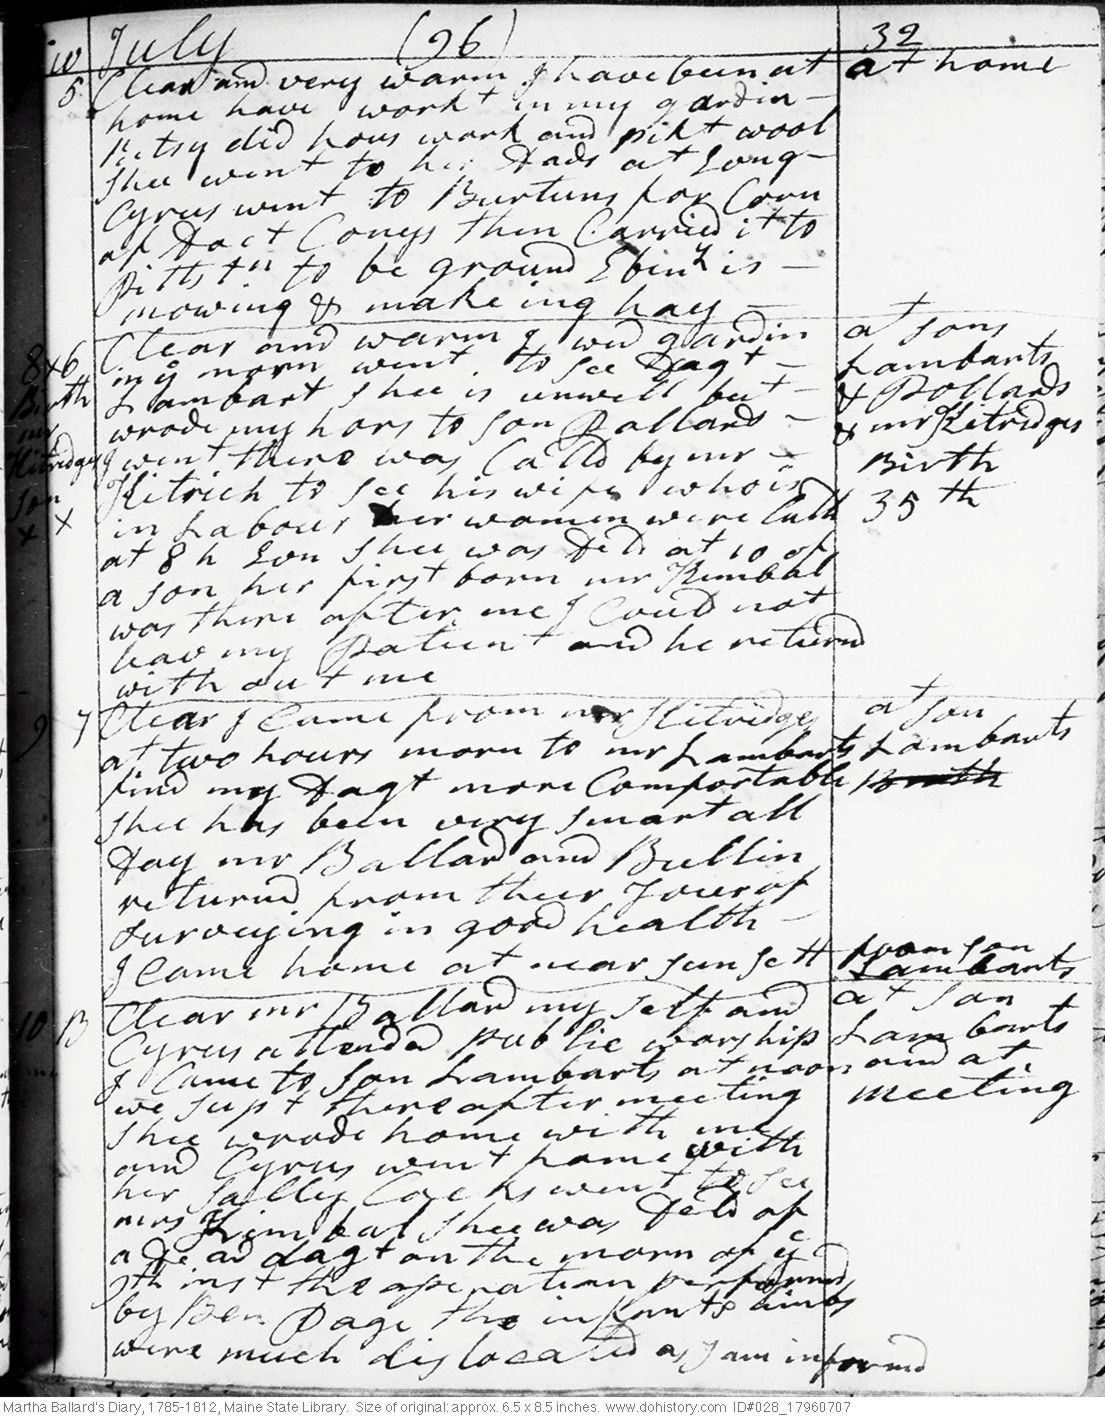 July (96) 32
5 Clear and very warm I have been at at home
home have workt in my gardin -
Betsy did hous work and pikt wool
shee went to her Dads at Evng -
Cyrus went to Burtuns for Corn
of Doct Conys then Carried it to
Pittstn to be ground Ebinh is -
mowing & makeing hay -
8 + 6 Clear and warm I wed gardin at sons
Birth in ye morn went to see Dagt - Lambarts
mr Lambart shee is unwell but - & Pollards
Kitridges wrode my hors to son Pollards - & mr Kitridges
son I went there was Calld by mr - Birth
+ x Kitrich to see his wife who is 35th
in Labour her women were Calld
at 8 h Evn shee was Deld at 10 of
a son her first born mr Kimbal
was there after me I Could not
leav my Patient and he returnd
with out me
9 7 Clear I Came from mr Kitridges at son
at two hours morn to mr Lambarts Lambarts
find my Dagt more Comfortable Birth
shee has been very smart all
Day mr Ballard and Bullin
returnd from their Tour of
surveying in good health -
I Came home at near sun sett from son Lambarts
10 B Clear mr Ballard my self and at son
Cyrus attended public worship Lambarts
I Came to son Lambarts at noon and at
we supt there after meeting meeting
shee wrode home with me
and Cyrus went home with
her Sally Cocks went to see
mrs Kimbal shee was Deld of
a Dead dagt on the morn of ye
9th inst the operation performd
by Ben Page the infants limbs
were much dislocated as I am informd
Martha Ballard's Diary, 1785-1812, Maine State Library. Size of original: approx. 6.5 x 8.5 inches. www.dohistory.com ID#028_17960707